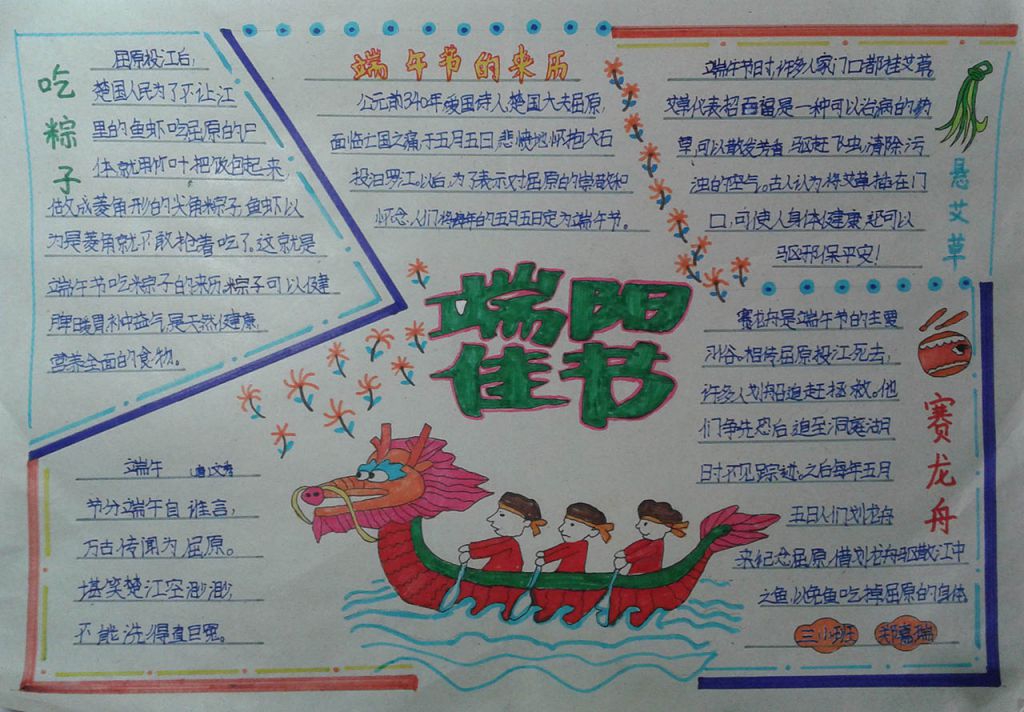 吃粽子
屈原投江后,
楚国人民为了不让江
里的鱼虾吃屈原的尸
体,就用竹叶把饭包起来,
做成菱角形的尖角粽子,鱼虾以
为是菱角就不敢抢着吃了。这就是
端午节吃粽子的来历。粽子可以健
脾暖胃补中益气,是天然健康,
营养全面的食物。
端午节的来历
公元前340年爱国诗人,楚国大夫屈原,
面临亡国之痛于五月五日,悲愤地怀抱大石
投汨罗江。以后,为了表示对屈原的崇敬和
怀念,人们将每年的五月五日定为端午节。
端午节时,许多人家门口都挂艾草,
艾草代表招百福是一种可以治病的药
草,可以散发芳香,驱赶飞虫,清除污
浊的空气。古人认为将艾草插在门
口,可使人身体健康,还可以
驱邪保平安!
悬艾草
端阳
佳节
赛龙舟是端午节的主要
习俗。相传屈原投江死去,
许多人划船追赶拯救。他
们争先恐后,追至洞庭湖
时不见踪迹。之后每年五月
五日人们划龙舟
来纪念屈原,借划龙舟驱散江中
之鱼,以免鱼吃掉屈原的身体。
赛龙舟
三小班
端午 (唐)文秀
节分端午自谁言,
万古传闻为屈原。
堪笑楚江空渺渺,
不能洗得直臣冤。